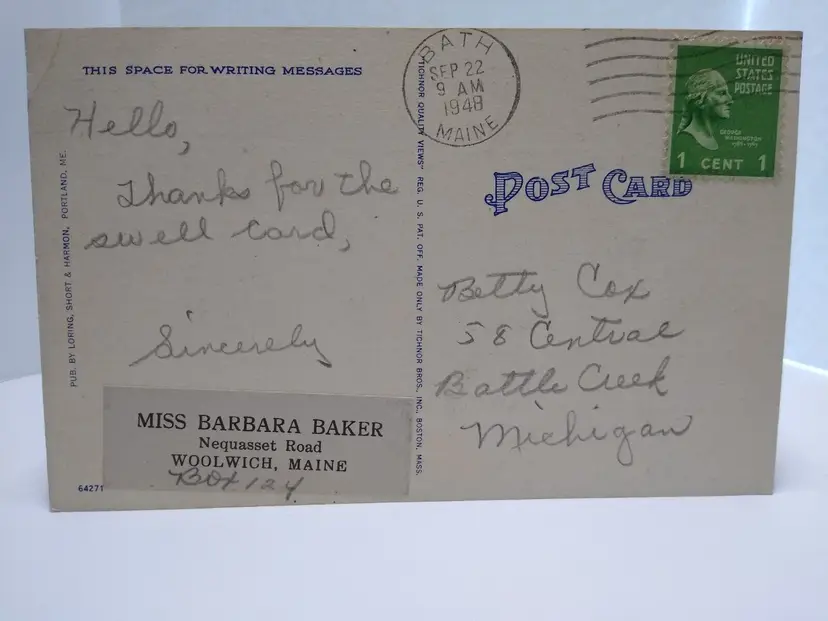 THIS SPACE FOR WRITING MESSAGES
Hello,
Thanks for the
swell card,
Sincerely
MISS BARBARA BAKER
Nequasset Road
WOOLWICH, MAINE
Box 124
64271
PUB. BY LORING, SHORT & HARMON, PORTLAND, ME.
"TICHNOR QUALITY VIEWS" REG. U. S. PAT. OFF. MADE ONLY BY TICHNOR BROS., INC., BOSTON, MASS.
BATH
SEP 22
9 AM
1948
MAINE
UNITED
STATES
POSTAGE
GEORGE
WASHINGTON
1 CENT 1
POST CARD
Betty Cox
58 Central
Battle Creek
Michigan